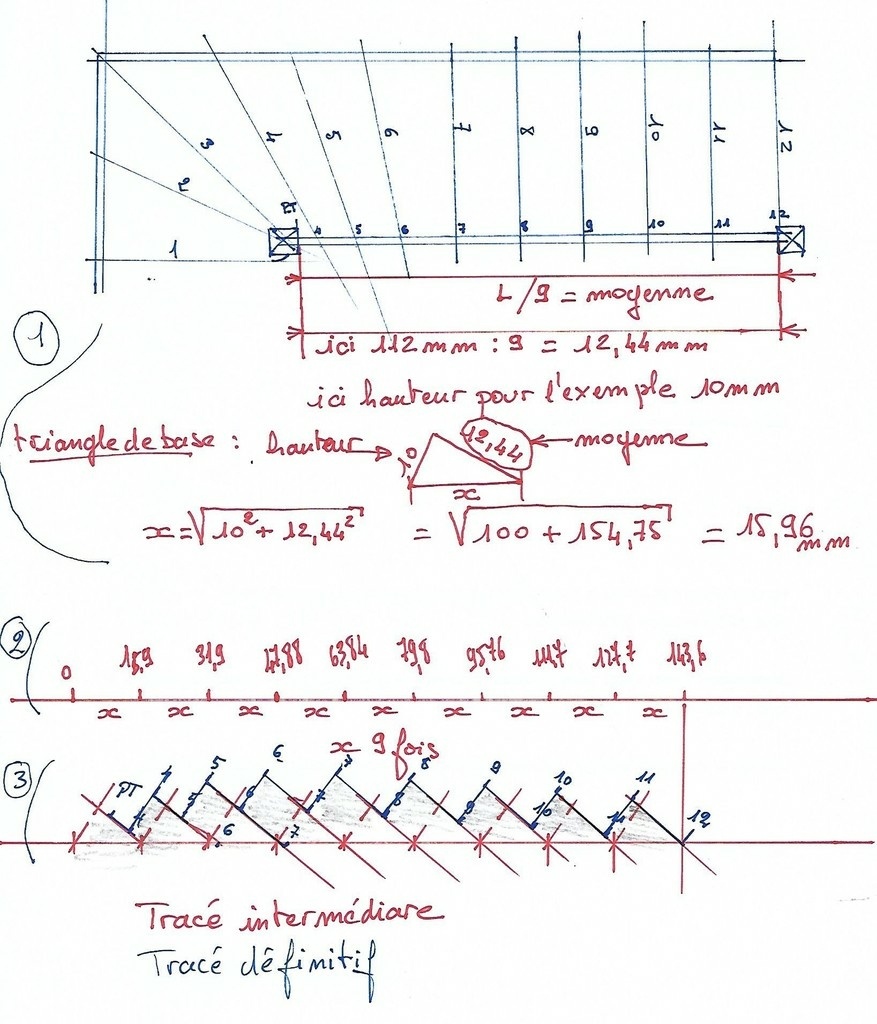 3 4 5 6 7 8 9 10 11 12
2
PT
4 5 6 7 8 9 10 11 12
1
L/9 = moyenne
1
ici 112mm : 9 = 12,44mm
ici hauteur pour l'exemple 10mm
triangle de base : hauteur 10 12,44 moyenne
x
x = √10² + 12,44² = √100 + 154,75 = 15,96 mm
2
0 15,9 31,9 47,88 63,84 79,8 95,76 111,7 127,7 143,6
x x x x x x x x x
x 9 fois
3
PT 4 5 6 7 8 9 10 11
4 5 6 7 8 9 10 11 12
6 7
Tracé intermédiare
Tracé définitif